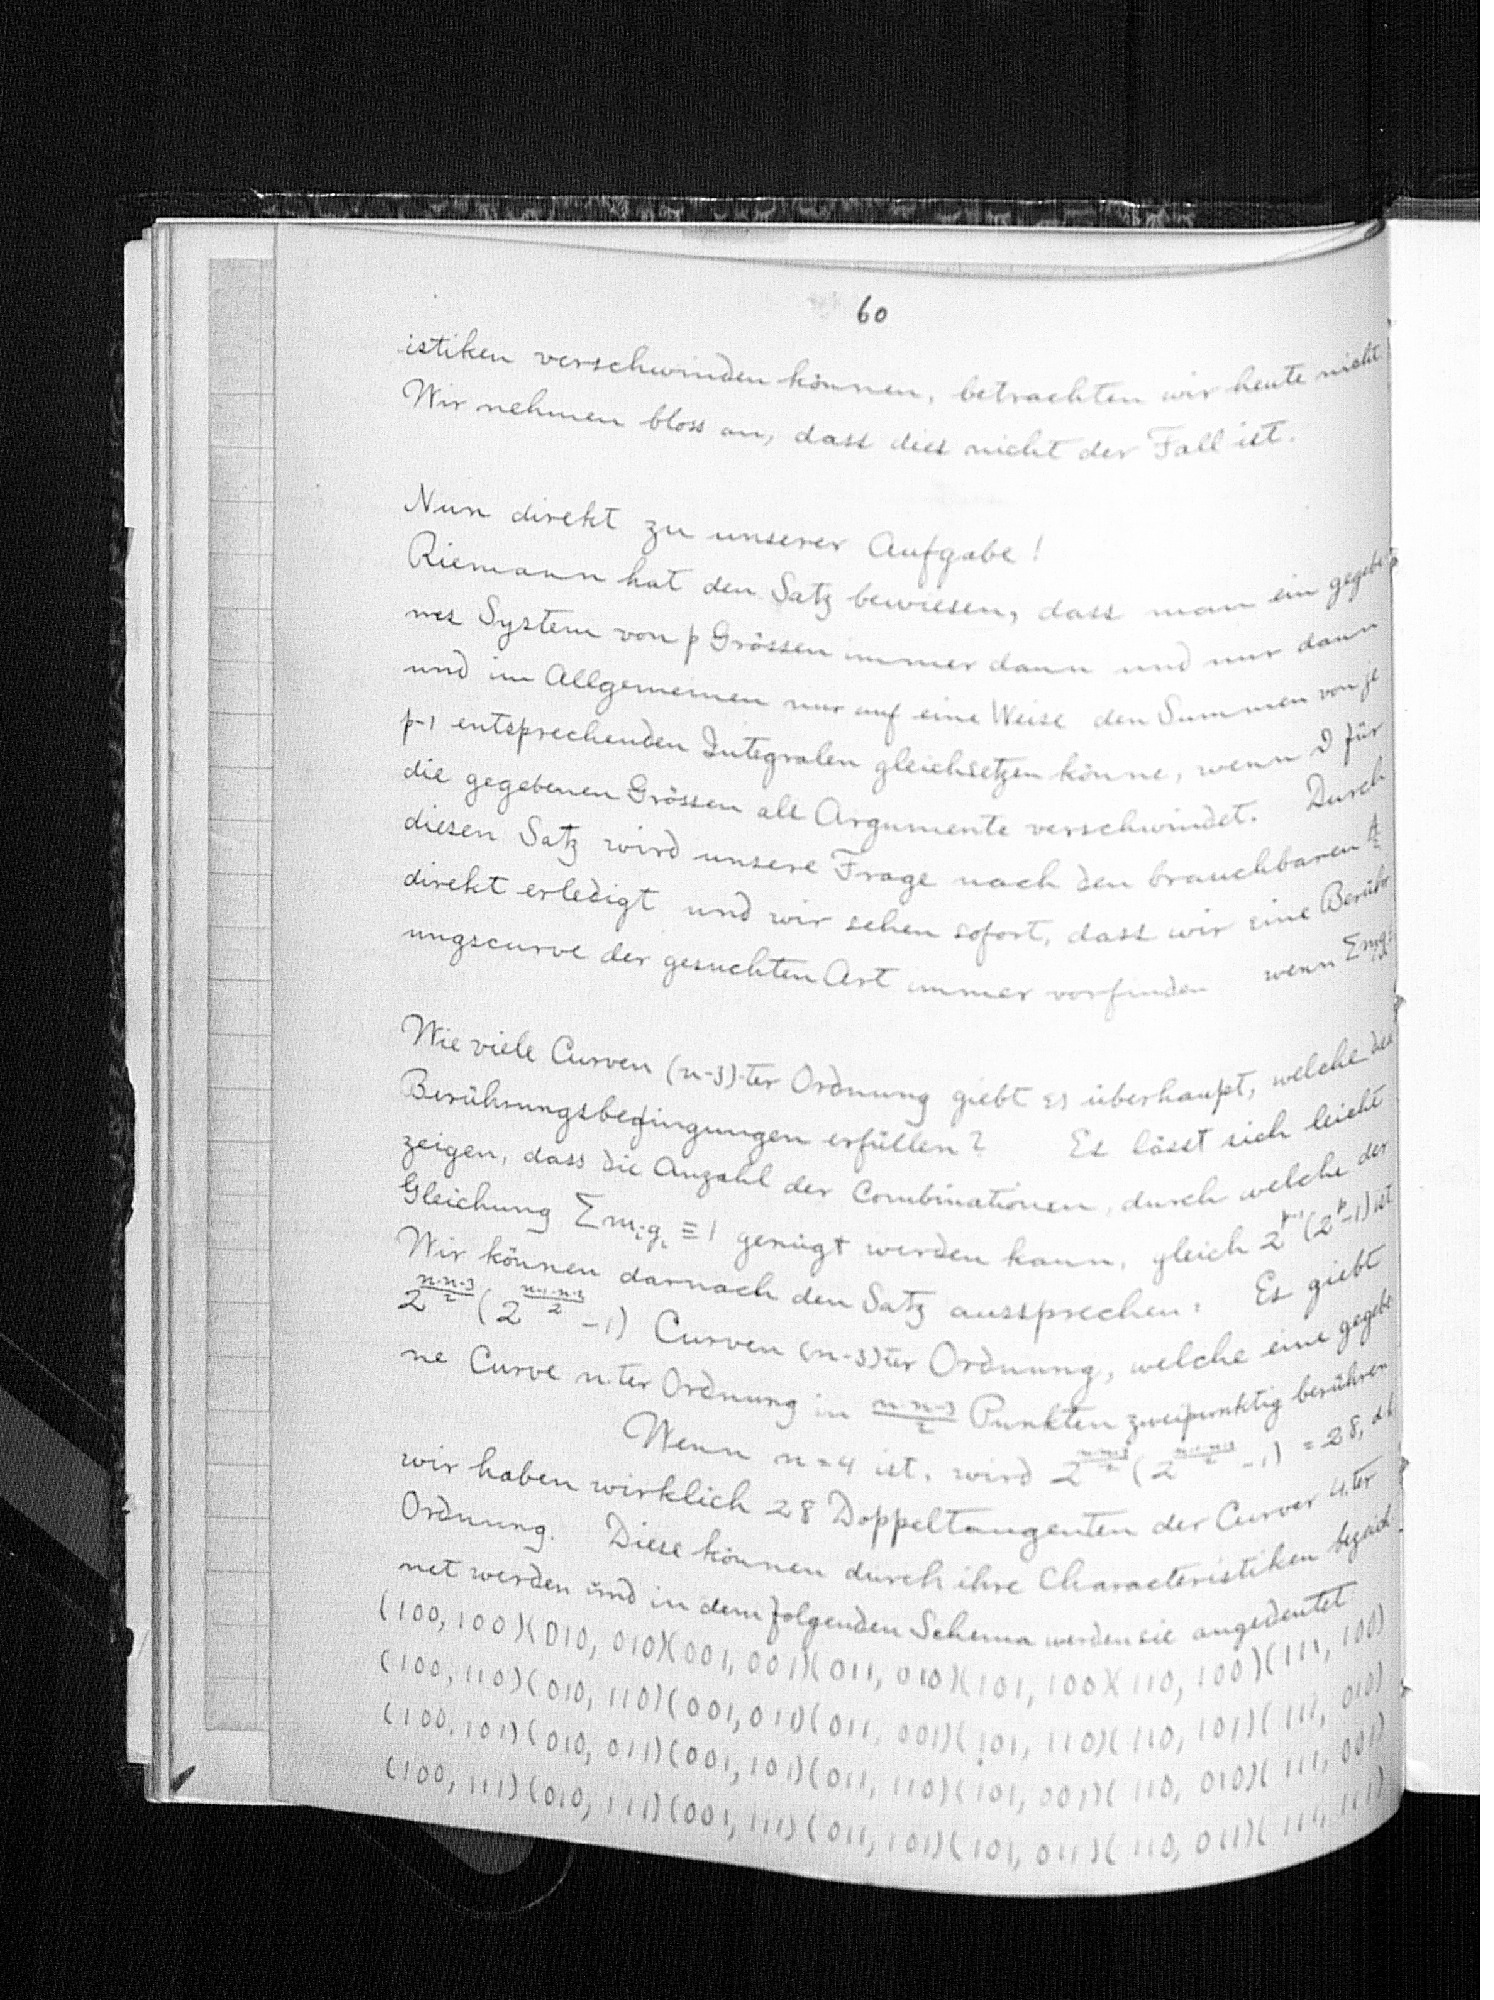 60
istiken verschwinden können, betrachten wir heute nicht
Wir nehmen bloss an, dass dies nicht der Fall ist.
Nun direkt zu unserer Aufgabe!
Riemann hat den Satz bewiesen, dass man ein gegebe
nes System von p Grössen immer dann und nur dann
und im Allgemeinen nur auf eine Weise den Summen von je
p-1 entsprechenden Integralen gleichsetzen könne, wenn ϑ für
die gegebenen Grössen als Argumente verschwindet. Durch
diesen Satz wird unsere Frage nach den brauchbaren
direkt erledigt und wir sehen sofort, dass wir eine Berühr
ungscurve der gesuchten Art immer vorfinden wenn Σmᵢgᵢ
Wie viele Curven (n-3)-ter Ordnung giebt es überhaupt, welche den
Berührungsbedingungen erfüllen? Es lässt sich leicht
zeigen, dass die Anzahl der Combinationen, durch welche der
Gleichung Σmᵢgᵢ ≡ 1 genügt werden kann, gleich 2^{p-1}(2^p-1) ist
Wir können darnach den Satz aussprechen: Es giebt
2^{\frac{n·n-3}{2}}(2^{\frac{n-1·n-2}{2}}-1) Curven (n-3)ter Ordnung, welche eine gegebe
ne Curve n.ter Ordnung in \frac{n·n-3}{2} Punkten zweipunktig berühren
Wenn n=4 ist, wird 2^{\frac{n·n-3}{2}}(2^{\frac{n-1·n-2}{2}}-1) = 28, d.h
wir haben wirklich 28 Doppeltangenten der Curven 4.ter
Ordnung. Diese können durch ihre Characteristiken bezeich
net werden und in dem folgenden Schema werden sie angedeutet
(100, 100)(010, 010)(001, 001)(011, 010)(101, 100)(110, 100)(111, 100)
(100, 110)(010, 110)(001, 011)(011, 001)(101, 110)(110, 101)(111, 010)
(100, 101)(010, 011)(001, 101)(011, 110)(101, 001)(110, 010)(111, 001)
(100, 111)(010, 111)(001, 111)(011, 101)(101, 011)(110, 011)(111, 111)